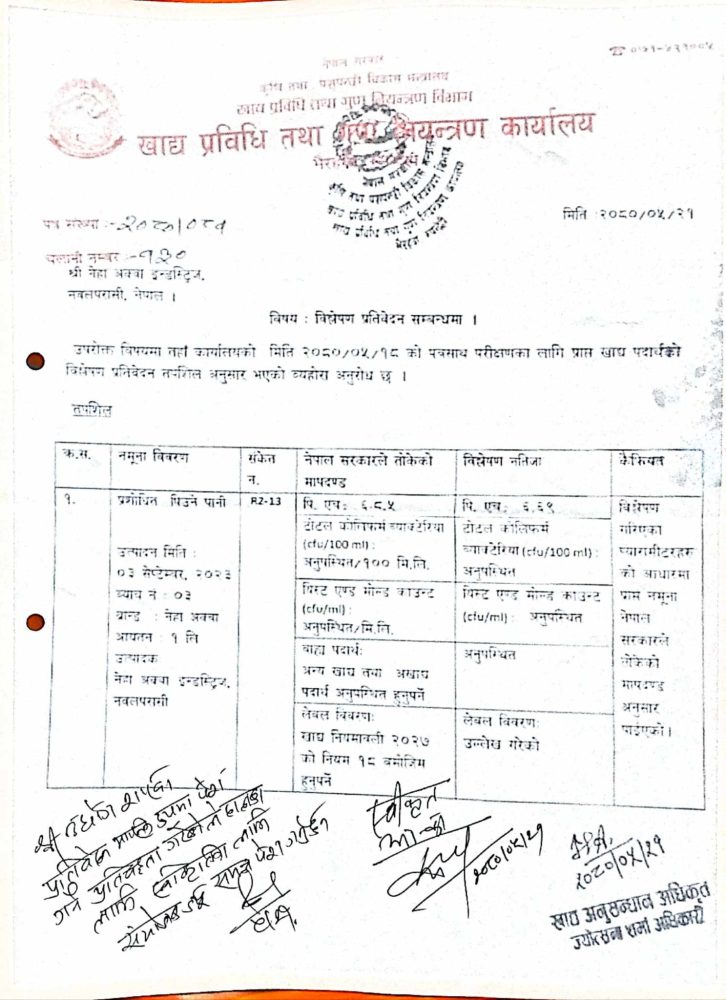 ☎ ०७१-५२१००५
नेपाल सरकार
कृषि तथा पशुपन्छी विकास मन्त्रालय
खाद्य प्रविधि तथा गुण नियन्त्रण विभाग
खाद्य प्रविधि तथा गुण नियन्त्रण कार्यालय
पत्र संख्या :- २०८०/०८१
मिति : २०८०/०५/२१
चलानी नम्बर :- १३०
श्री नेहा अक्वा इन्डस्ट्रिज,
नवलपरासी, नेपाल ।
विषय : विश्लेषण प्रतिवेदन सम्बन्धमा ।
उपरोक्त विषयमा तहाँ कार्यालयको मिति २०८०/०५/१८ को पत्रसाथ परीक्षणका लागि प्राप्त खाद्य पदार्थको
विश्लेषण प्रतिवेदन तपशिल अनुसार भएको व्यहोरा अनुरोध छ ।
तपशिल
क.स. नमूना विवरण संकेत न. नेपाल सरकारले तोकेको मापदण्ड विश्लेषण नतिजा कैफियत
१. प्रशोधित पिउने पानी R2-13
उत्पादन मिति :
०३ सेप्टेम्बर, २०२३
ब्याच नं : ०३
ब्रान्ड : नेहा अक्वा
आयतन : १ लि
उत्पादक
नेहा अक्वा इन्डस्ट्रिज,
नवलपरासी
पि. एच: ६.८.५
टोटल कोलिफर्म ब्याक्टेरिया
(cfu/100 ml) :
अनुपस्थित/१०० मि.लि.
यिस्ट एण्ड मोल्ड काउन्ट
(cfu/ml) :
अनुपस्थित/मि.लि.
बाह्य पदार्थ:
अन्य खाद्य तथा अखाद्य
पदार्थ अनुपस्थित हुनुपर्ने
लेबल विवरण:
खाद्य नियमावली २०२७
को नियम १८ बमोजिम
हुनुपर्ने
पि. एच: ६.६९
टोटल कोलिफर्म
ब्याक्टेरिया (cfu/100 ml) :
अनुपस्थित
यिस्ट एण्ड मोल्ड काउन्ट
(cfu/ml) : अनुपस्थित
अनुपस्थित
लेबल विवरण:
उल्लेख गरेको
विश्लेषण
गरिएका
प्यारामीटरहरु
को आधारमा
प्राप्त नमूना
नेपाल
सरकारले
तोकेको
मापदण्ड
अनुसार
पाईएको ।
प्रतिवेदन
स्वीकृत
२०८०/०५/२१
२०८०/०५/२१
खाद्य अनुसन्धान अधिकृत
ज्योत्सना शर्मा अधिकारी